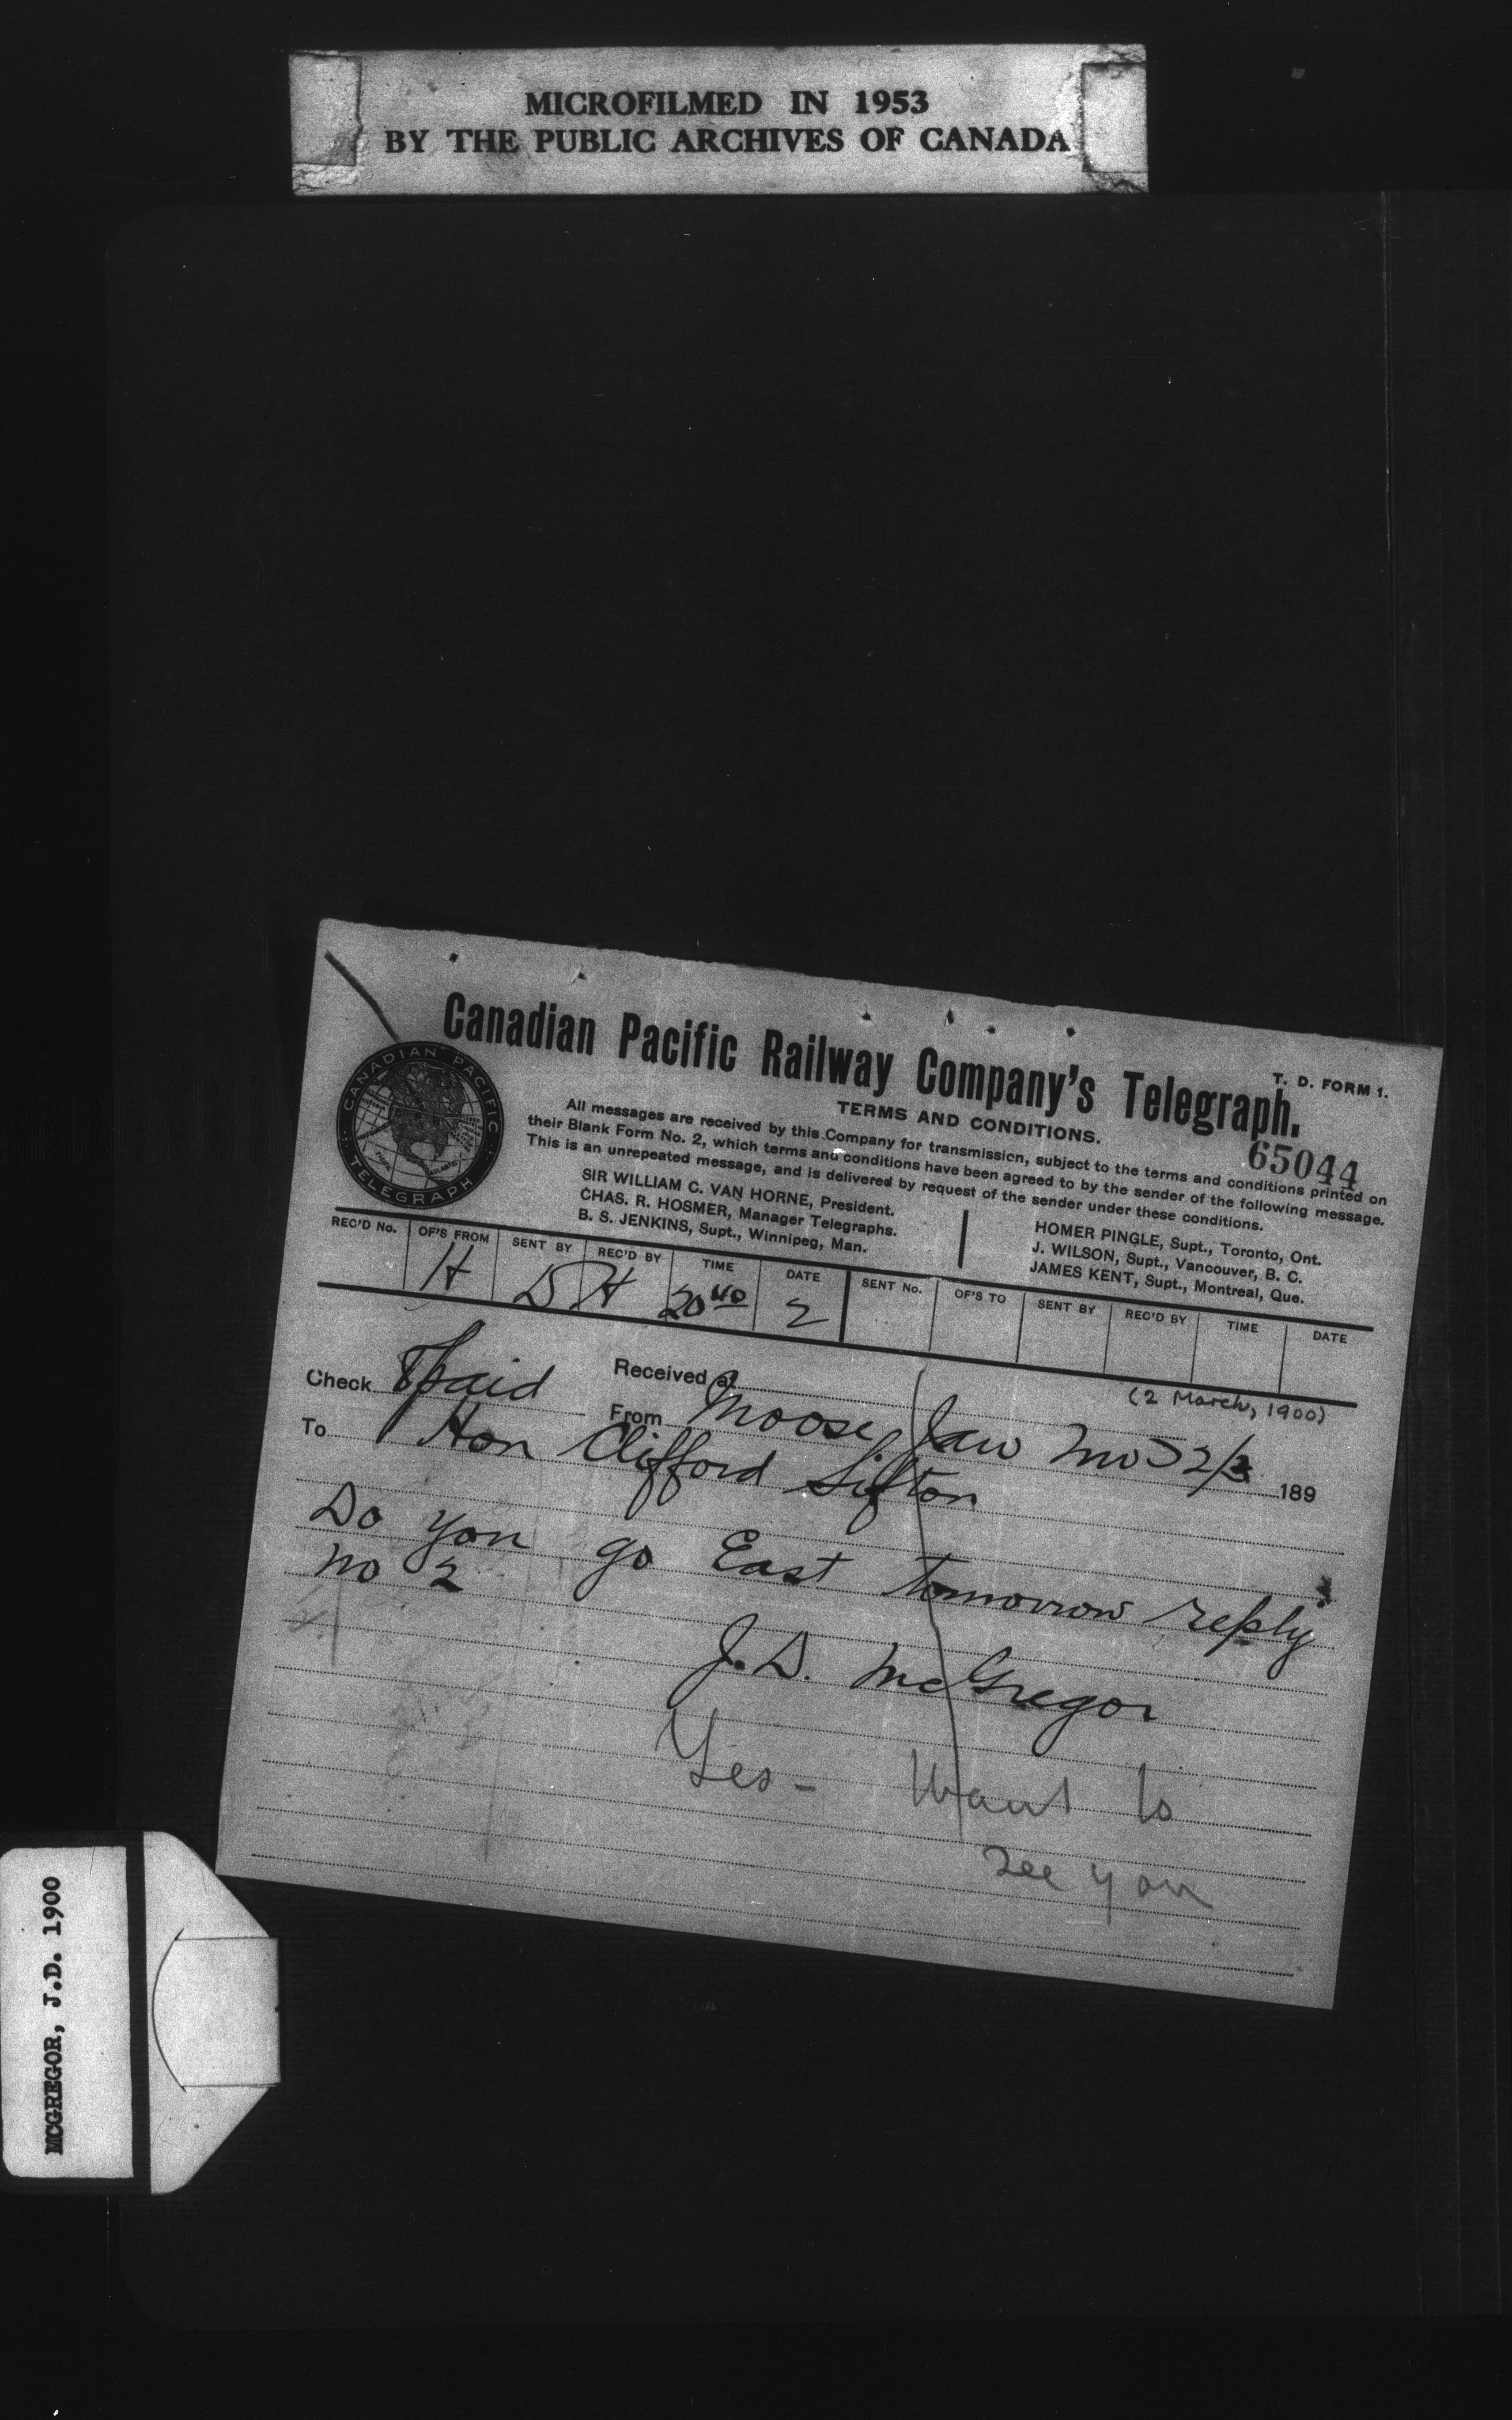 MICROFILMED IN 1953
BY THE PUBLIC ARCHIVES OF CANADA
Canadian Pacific Railway Company's Telegraph.
T. D. FORM 1.
TERMS AND CONDITIONS.
65044
All messages are received by this Company for transmission, subject to the terms and conditions printed on
their Blank Form No. 2, which terms and conditions have been agreed to by the sender of the following message.
This is an unrepeated message, and is delivered by request of the sender under these conditions.
SIR WILLIAM C. VAN HORNE, President.
CHAS. R. HOSMER, Manager Telegraphs.
B. S. JENKINS, Supt., Winnipeg, Man.
HOMER PINGLE, Supt., Toronto, Ont.
J. WILSON, Supt., Vancouver, B. C.
JAMES KENT, Supt., Montreal, Que.
CANADIAN PACIFIC
TELEGRAPH
REC'D No. OF'S FROM SENT BY REC'D BY TIME DATE SENT No. OF'S TO SENT BY REC'D BY TIME DATE
H D H 20 40 2
Received at
(2 March, 1900)
Check 8 paid From Moose Jaw 2/3 189
To Hon Clifford Sifton
Do you go East tomorrow reply
no 2
J. D. McGregor
Yes - Want to
see you
MCGREGOR, J.D. 1900